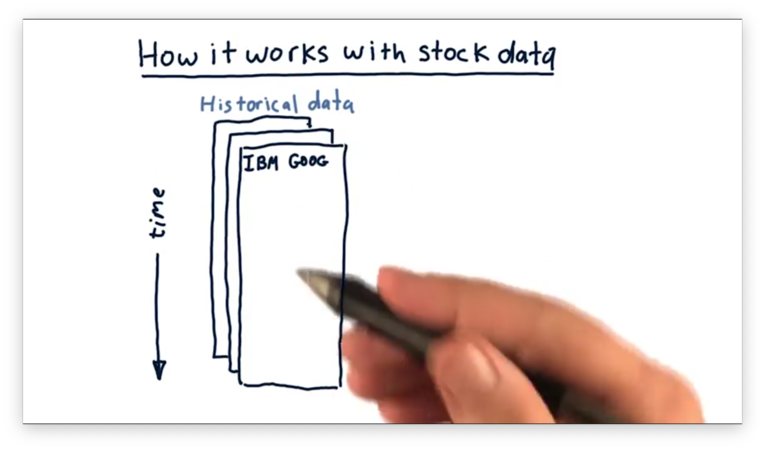 How it works with stock data
Historical data
IBM GOOG
time